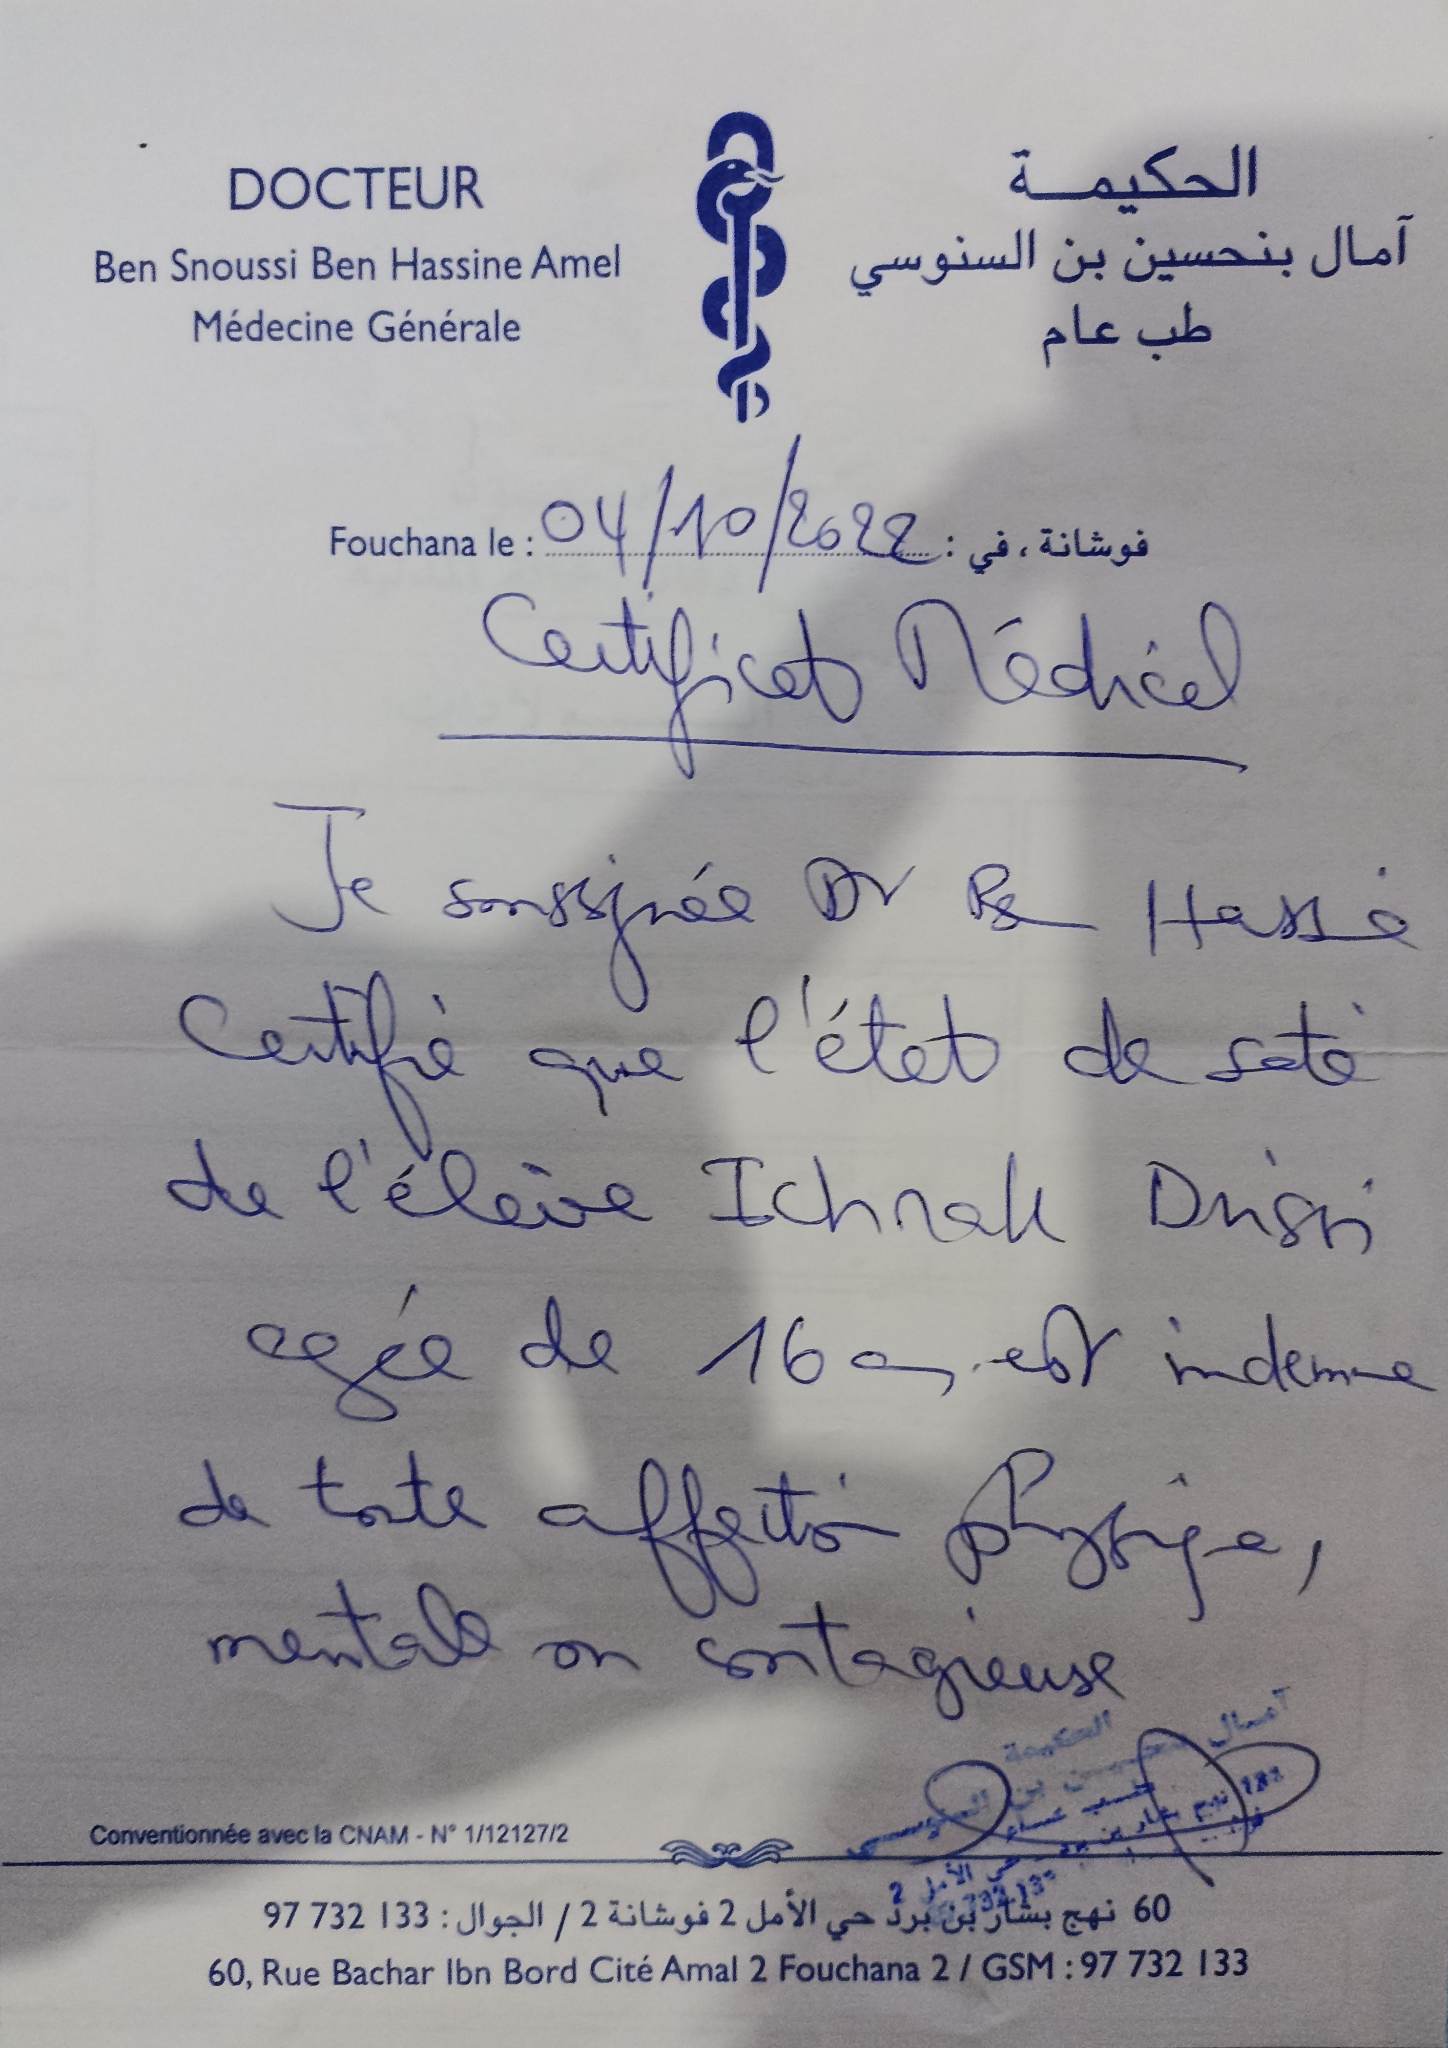 DOCTEUR
Ben Snoussi Ben Hassine Amel
Médecine Générale
الحكيمة
آمال بنحسين بن السنوسي
طب عام
Fouchana le : 04/10/2022 فوشانة ، في :
Certificat Médical
Je soussignée Dr Ben Hassine
Certifié que l'état de saté
de l'élève Ichrak Drissi
agée de 16 ans est indemne
de toute affection physique,
mentale ou contagieuse
الحكيمة
آمال بنحسين بن السنوسي
طب عام
Conventionnée avec la CNAM - N° 1/12127/2
60 نهج بشار بن برد حي الأمل 2 فوشانة 2 / الجوال : 133 732 97
60, Rue Bachar Ibn Bord Cité Amal 2 Fouchana 2 / GSM : 97 732 133